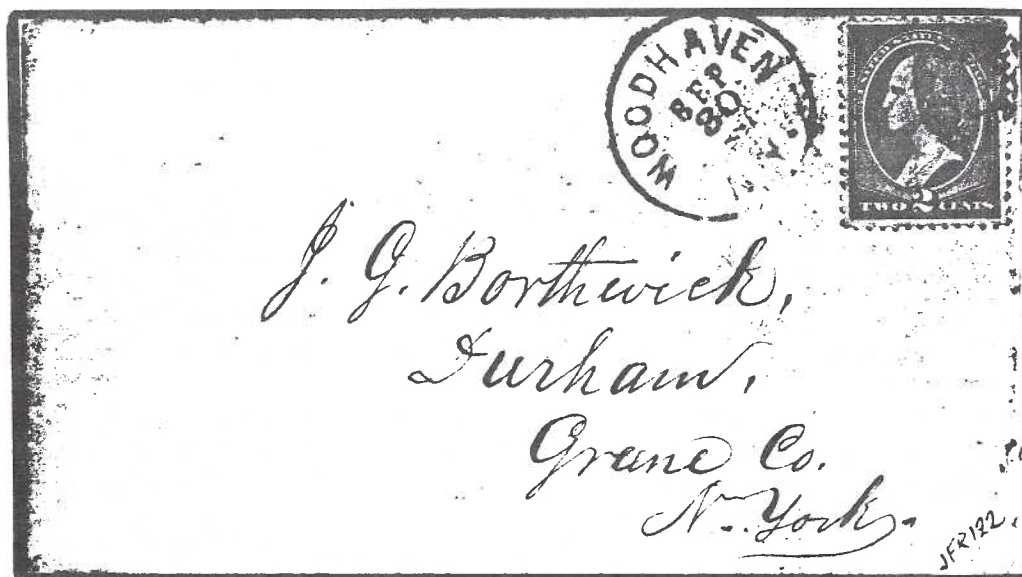 WOODHAVEN
SEP
30
N.Y.
TWO 2 CENTS
J. G. Borthwick,
Durham,
Greene Co.
N. York.
JFR122